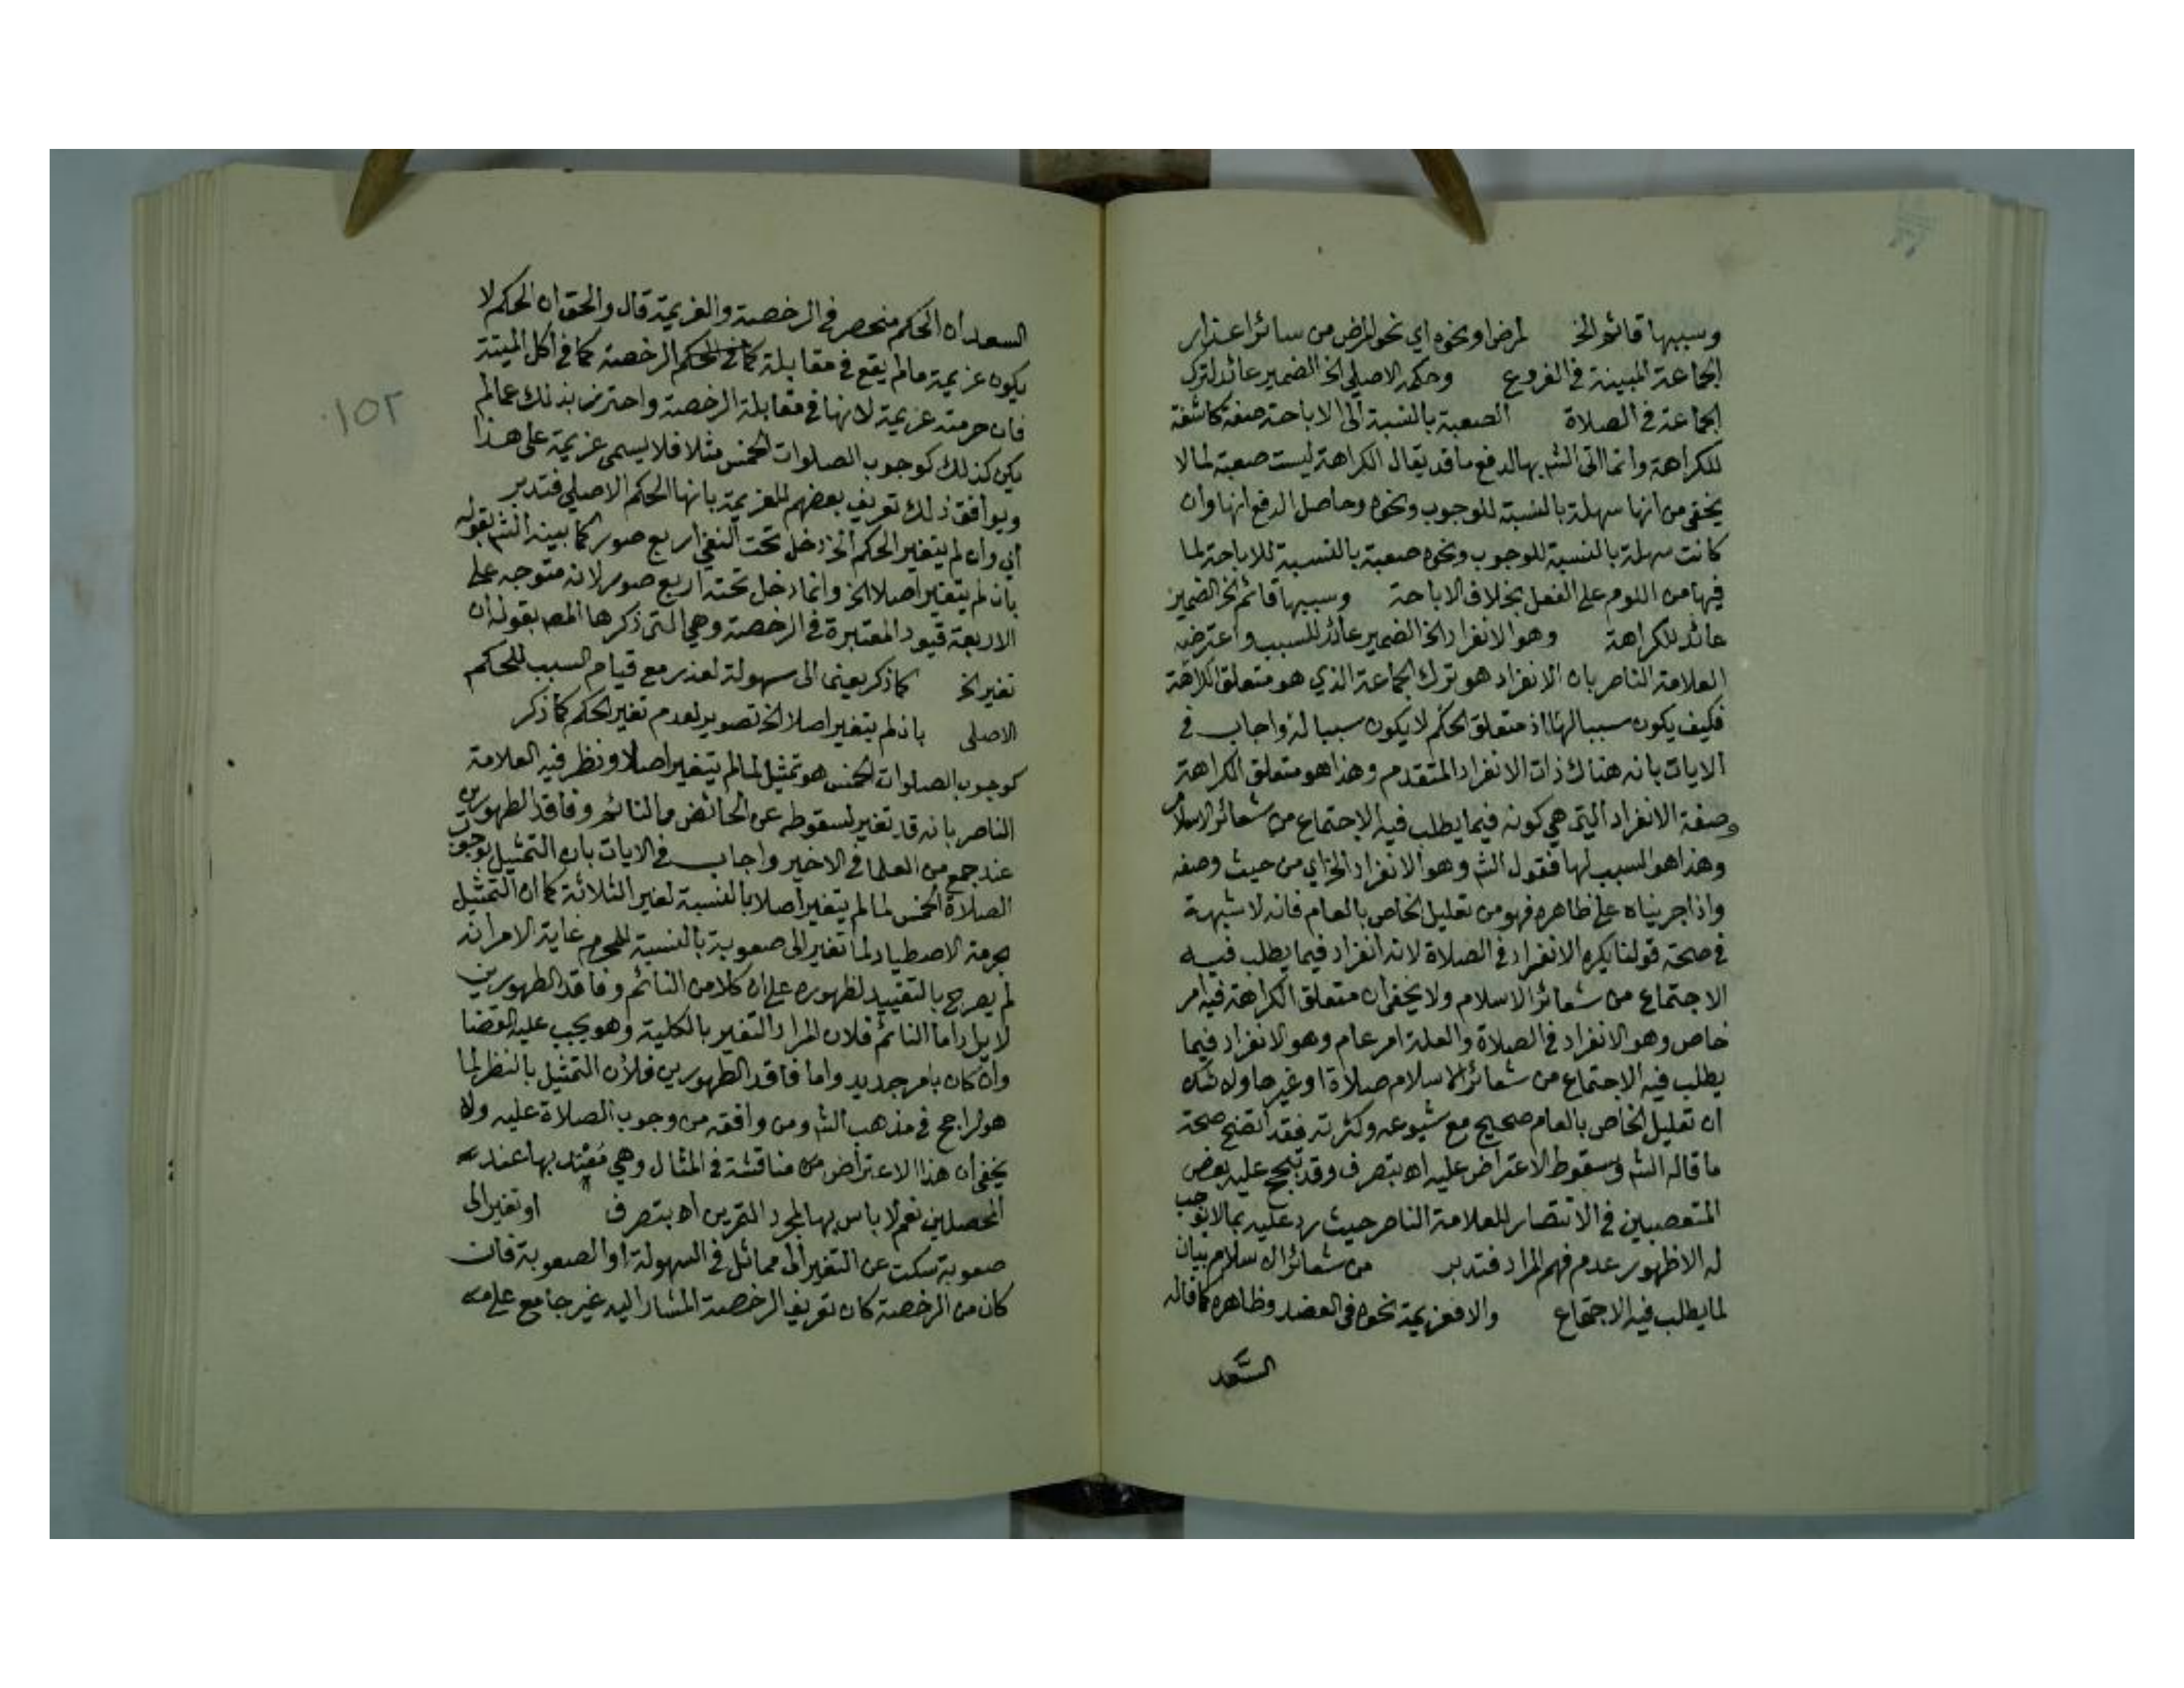 وسببها قائم الخ لمرض او نحوه اي نحو المرض من سائر اعذار
الجماعة المبينة في الفروع وحكمه الاصلي الخ الضمير عائد لترك
الجماعة في الصلاة الصعبة بالنسبة الى الاباحة صفة كاشفة
للكراهة وانما اتى الش بها لدفع ما قد يقال الكراهة ليست صعبة لما لا
يخفى من انها سهلة بالنسبة للوجوب ونحوه وحاصل الدفع انها وان
كانت سهلة بالنسبة للوجوب ونحوه صعبة بالنسبة للاباحة لما
فيها من اللوم على الفعل بخلاف الاباحة وسببها قائم الخ الضمير
عائد للكراهة وهو الانفراد الخ الضمير عائد للسبب واعترضه
العلامة الناصر بان الانفراد هو ترك الجماعة الذي هو متعلق الكراهة
فكيف يكون سببا لها اذ متعلق الحكم لا يكون سببا له واجاب في
الايات بانه هناك ذات الانفراد المتقدم وهذا هو متعلق الكراهة
وصفة الانفراد التي هي كونه فيما يطلب فيه الاجتماع من شعائر الاسلام
وهذا هو السبب لها فقول الش وهو الانفراد الخ اي من حيث وصفه
واذا جريناه على ظاهره فهو من تعليل الخاص بالعام فانه لا شبهة
في صحة قولنا يكره الانفراد في الصلاة لانه انفراد فيما يطلب فيه
الاجتماع من شعائر الاسلام ولا يخفى ان متعلق الكراهة فيه امر
خاص وهو الانفراد في الصلاة والعلة امر عام وهو الانفراد فيما
يطلب فيه الاجتماع من شعائر الاسلام صلاة او غيرها ولا شك
ان تعليل الخاص بالعام صحيح مع شيوعه وكثرته فقد اتضح صحة
ما قاله الش وسقوط الاعتراض عليه اه بتصرف وقد تبجح عليه بعض
المتعصبين في الانتصار للعلامة الناصر حيث رد عليه بما لا يوجب
له الا ظهور عدم فهم المراد فتدبر من شعائر الاسلام بيان
لما يطلب فيه الاجتماع والا فعزيمة نحوه في العضد وظاهره كما قاله
السعد
السعد ان الحكم منحصر في الرخصة والعزيمة قال والحق ان الحكم لا
يكون عزيمة ما لم يقع في مقابلة الرخصة كما في اكل الميتة
فان حرمته عزيمة لانها في مقابلة الرخصة واحترز بذلك عما لم
يكن كذلك كوجوب الصلوات الخمس مثلا فلا يسمى عزيمة على هذا
ويوافق ذلك تعريف بعضهم للعزيمة بانها الحكم الاصلي فتدبر
اي وان لم يتغير الحكم الخ دخل تحت النفي اربع صور كما بينه الش بقوله
بان لم يتغير اصلا الخ وانما دخل تحته اربع صور لانه متوجه على
الاربعة قيود المعتبرة في الرخصة وهي التي ذكرها المص بقوله ان
تغير الخ كما ذكر يعني الى سهولة لعذر مع قيام السبب للحكم
الاصلى بان لم يتغير اصلا الخ تصوير لعدم تغير الحكم كما ذكر
كوجوب الصلوات الخمس هو تمثيل لما لم يتغير اصلا ونظر فيه العلامة
الناصر بانه قد تغير لسقوطه عن الحائض والنائم وفاقد الطهورين
عند جمع من العلما في الاخير واجاب في الايات بان التمثيل بوجوب
الصلاة الخمس لما لم يتغير اصلا بالنسبة لغير الثلاثة كما ان التمثيل
بحرمة الاصطياد لما تغير الى صعوبة بالنسبة للمحرم غاية الامر انه
لم يصرح بالتقييد لظهوره على ان كلا من النائم وفاقد الطهورين
لا يرد اما النائم فلان المراد التغير بالكلية وهو يجب عليه القضا
وان كان بامر جديد واما فاقد الطهورين فلان التمثيل بالنظر لما
هو الراجح في مذهب الش ومن وافقه من وجوب الصلاة عليه ولا
يخفى ان هذا الاعتراض من مناقشة في المثال وهي بها عند
المحصلين نعم لا باس بها لمجرد التمرين اه بتصرف او تغير الى
صعوبة سكت عن التغير الى مماثل في السهولة او الصعوبة فان
كان من الرخصة كان تعريف الرخصة المشار اليه غير جامع على
١٥٢